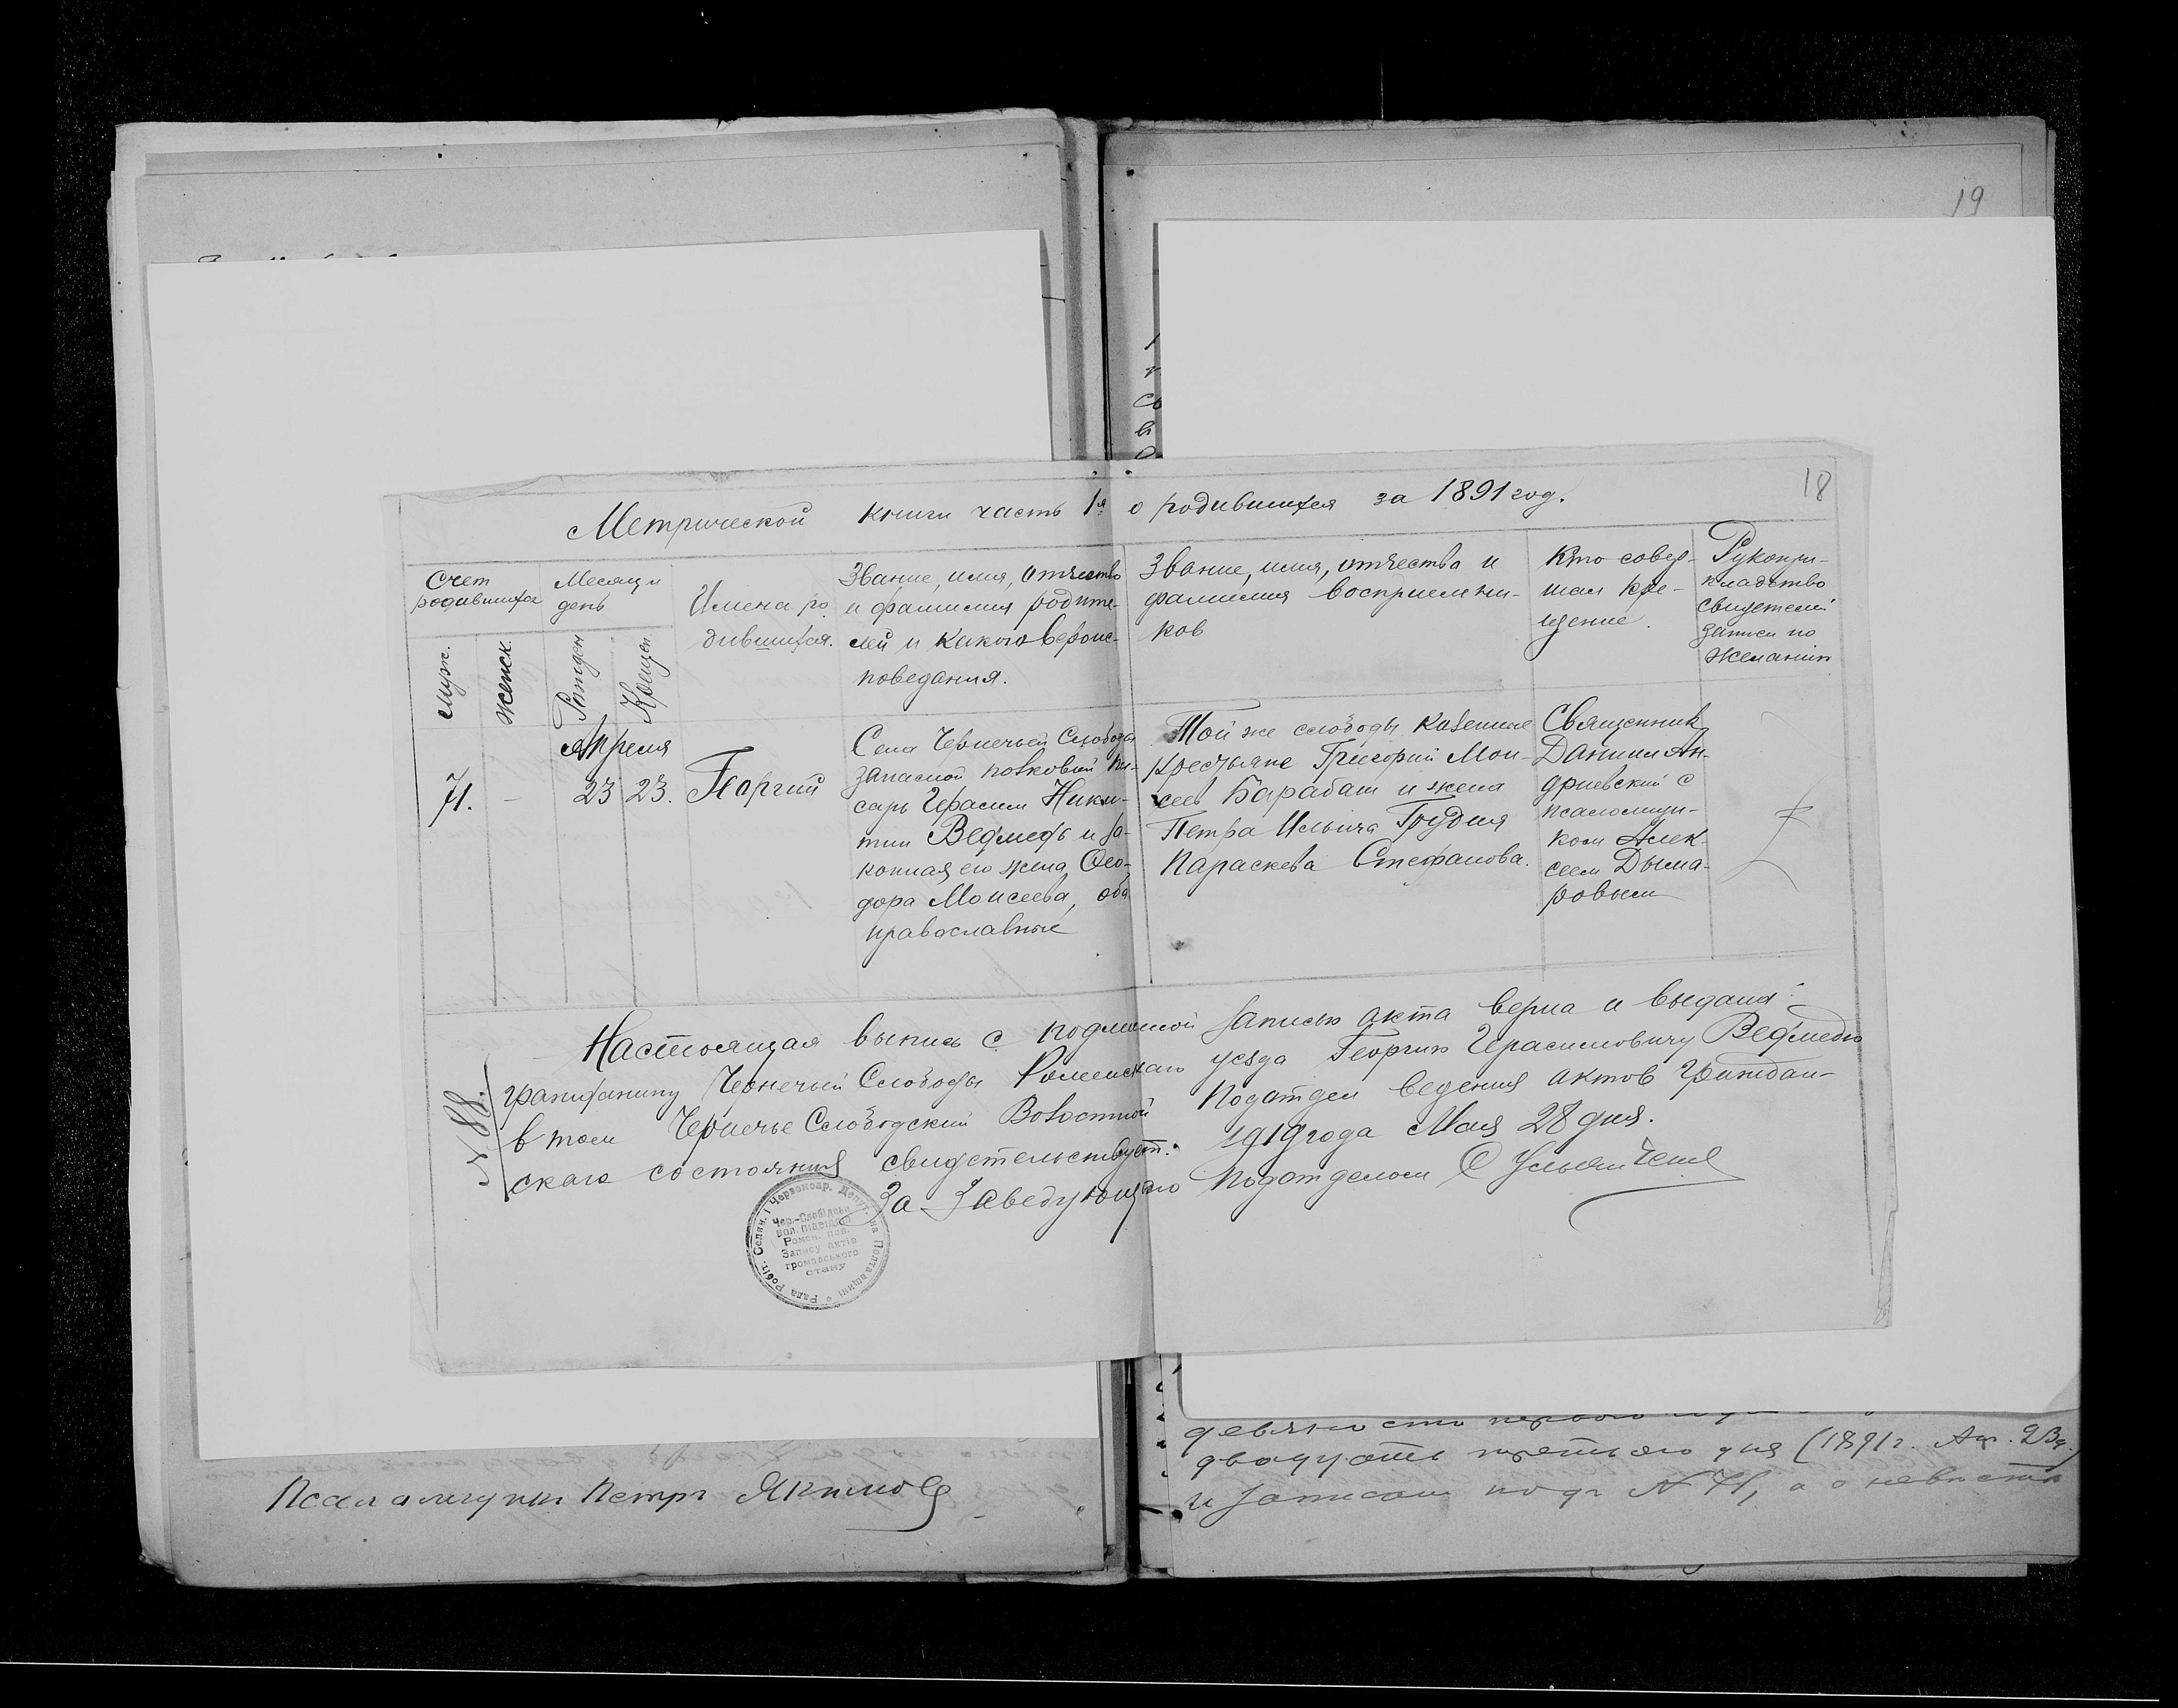 19
18
Метрической книги часть 1я о родившихся за 1891 год.
Счет родившихся
муж.
женск.
Месяц и день
Рожден
Крещен
Имена ро
дившихся.
Звание, имя, отчество
и фамилия родите-
лей и какого вероис-
поведания.
Звание, имя, отчество и
фамилия восприемни-
ков
Кто совер-
шал кре-
щение.
Рукопри-
кладство
свидетелей
записи по
желанию
71.
-
Апреля
23
23.
Георгий
Села Чернечьей Слободы
запасной полковой пи-
сарь Герасим Ники-
тин Ведмедь и за-
конная его жена Фео-
дора Моисеева, оба
православные
Той же слободы казенные
крестьяне Григорий Мои-
сеев Барабаш и жена
Петра Ильича Грудия
Параскева Стефанова.
Священник
Даниил Ан-
дриевский с
псаломщи-
ком Алек-
сеем Дыма-
ровым
№ 88.
Настоящая выпись с подлинной записью акта верна и выдана
гражданину Чернечьей Слободы Роменскаго уезда Георгию Герасимовичу Ведмедю
в том Чернече Слободский Волостной Подотдел ведения актов граждан-
скаго состояния свидетельствует. 1919 года Мая 28 дня.
За Заведующаго Подотделом
Рада Робіт. Селян. і Червоноар. Депут. на Полтавщині
Чер.-Слобідськ
Вол. підвідділ
Ромен. пов.
Запису актів
громадського
стану
Псаломщик Петр Якимов
девяносто перваго
двадцать третьяго дня (1891 г. Ап. 23 д.)
и записан под № 71, а о невесте